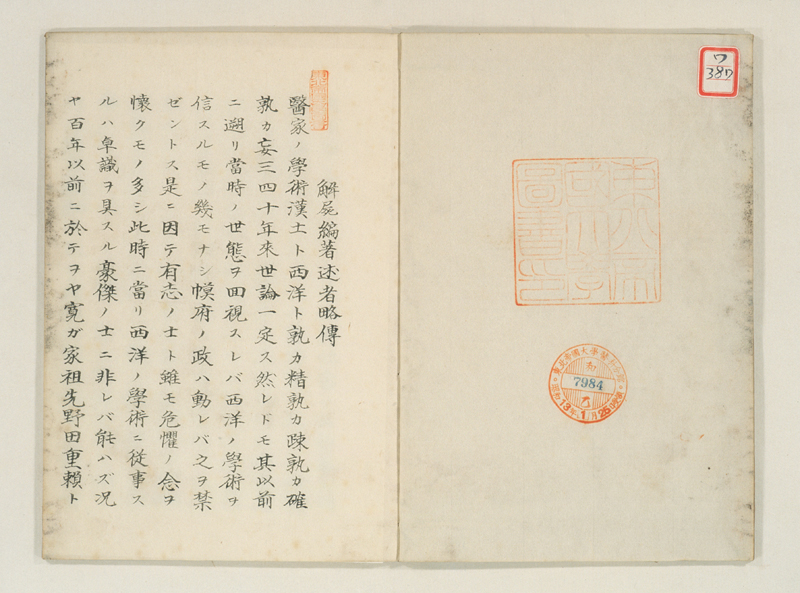 ワ
387
7984
解屍編著述者略傳
醫家ノ學術漢土ト西洋ト孰カ精孰カ疎孰カ確
孰カ妄三四十年來世論一定ス然レドモ其以前
ニ遡リ當時ノ世態ヲ回視スレバ西洋ノ學術ヲ
信スルモノ幾モナシ幙府ノ政ハ動レバ之ヲ禁
ゼントス是ニ因テ有志ノ士ト雖モ危懼ノ念ヲ
懷クモノ多シ此時ニ當リ西洋ノ學術ニ從事ス
ルハ卓識ヲ具スル豪傑ノ士ニ非レバ能ハズ况
ヤ百年以前ニ於テヲヤ寛ガ家祖先野田重頼ト